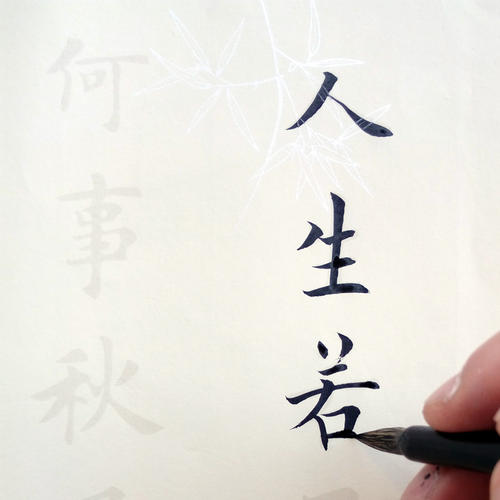 人生若
何事秋